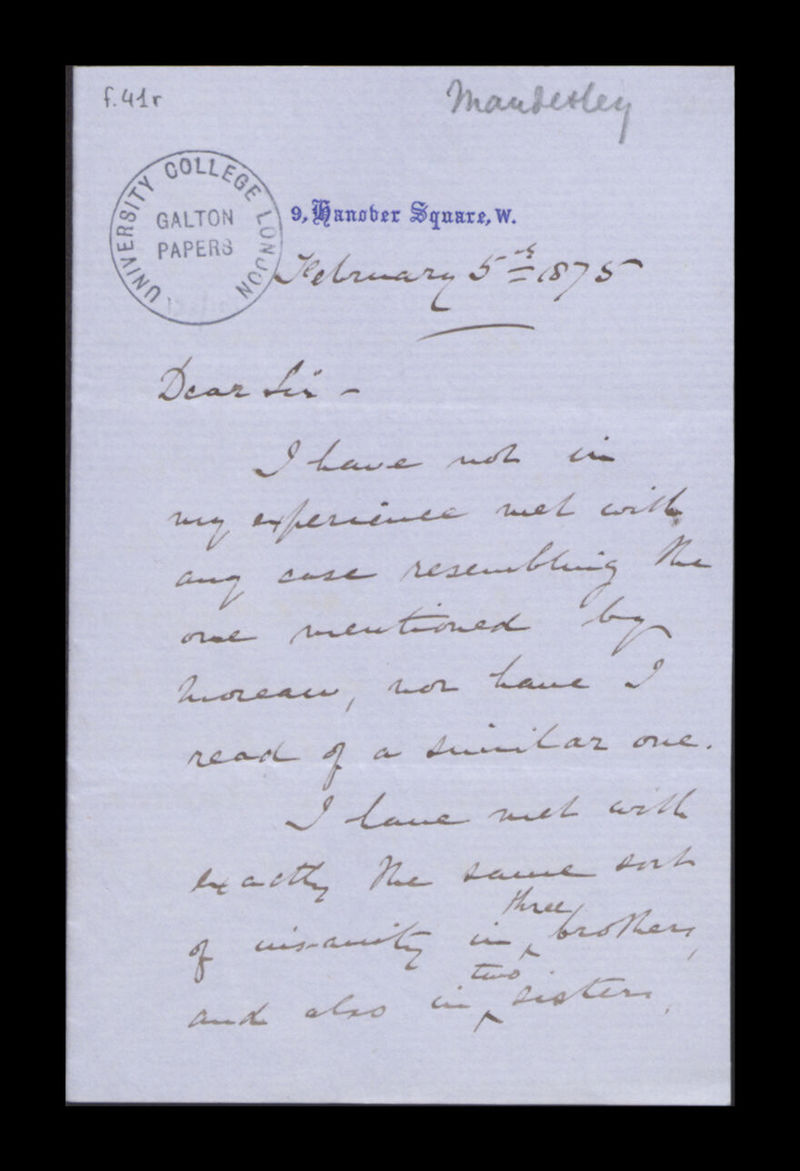 f.41r
Maudesley
UNIVERSITY COLLEGE LONDON
GALTON
PAPERS
9, Hanover Square, W.
February 5th 1875
Dear Sir –
I have not in
my experience met with
any case resembling the
one mentioned by
Moreau, nor have I
read of a similar one.
I have met with
exactly the same sort
of insanity in three brothers,
and also in two sisters,